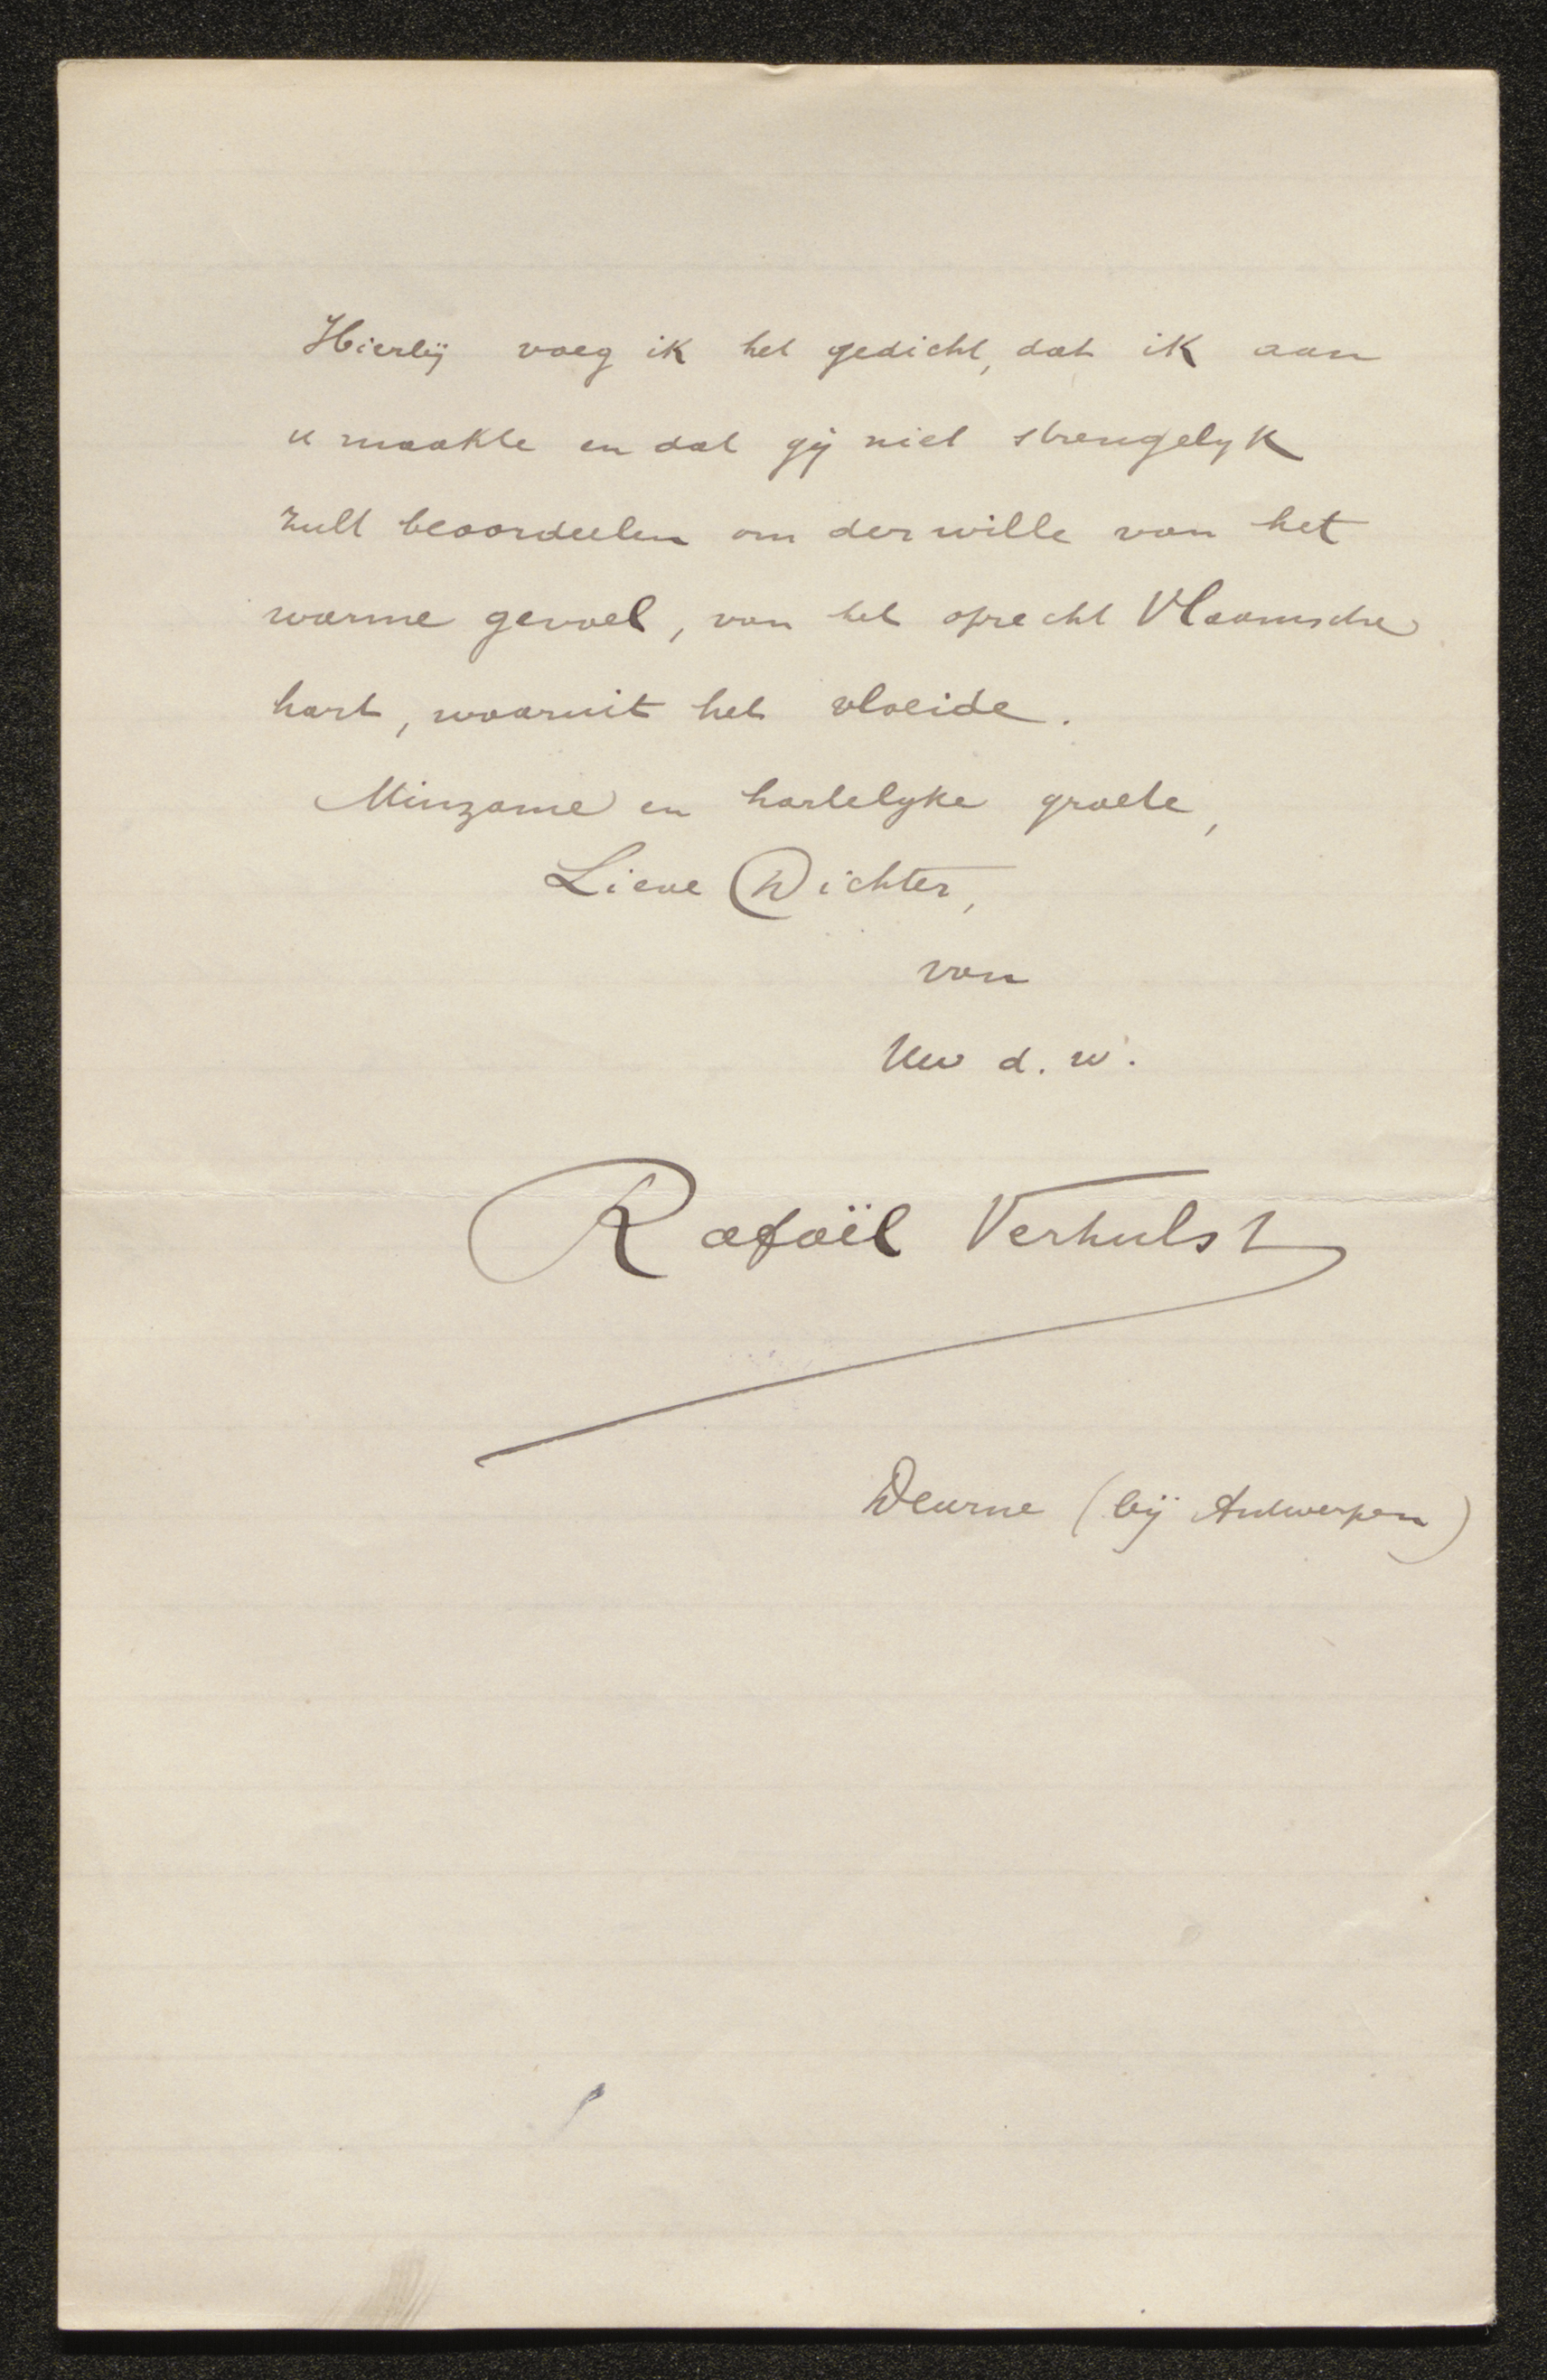 Hierbij voeg ik het gedicht, dat ik aan
u maakte en dat gij niet strengelyk
zult beoordeelen om der wille van het
warme gevoel, van het oprecht Vlaamsche
hart, waaruit het vloeide.
Minzame en hartelyke groete,
Lieve Dichter,
van
Uw d. w.
Rafaël Verhulst
Deurne (bij Antwerpen)